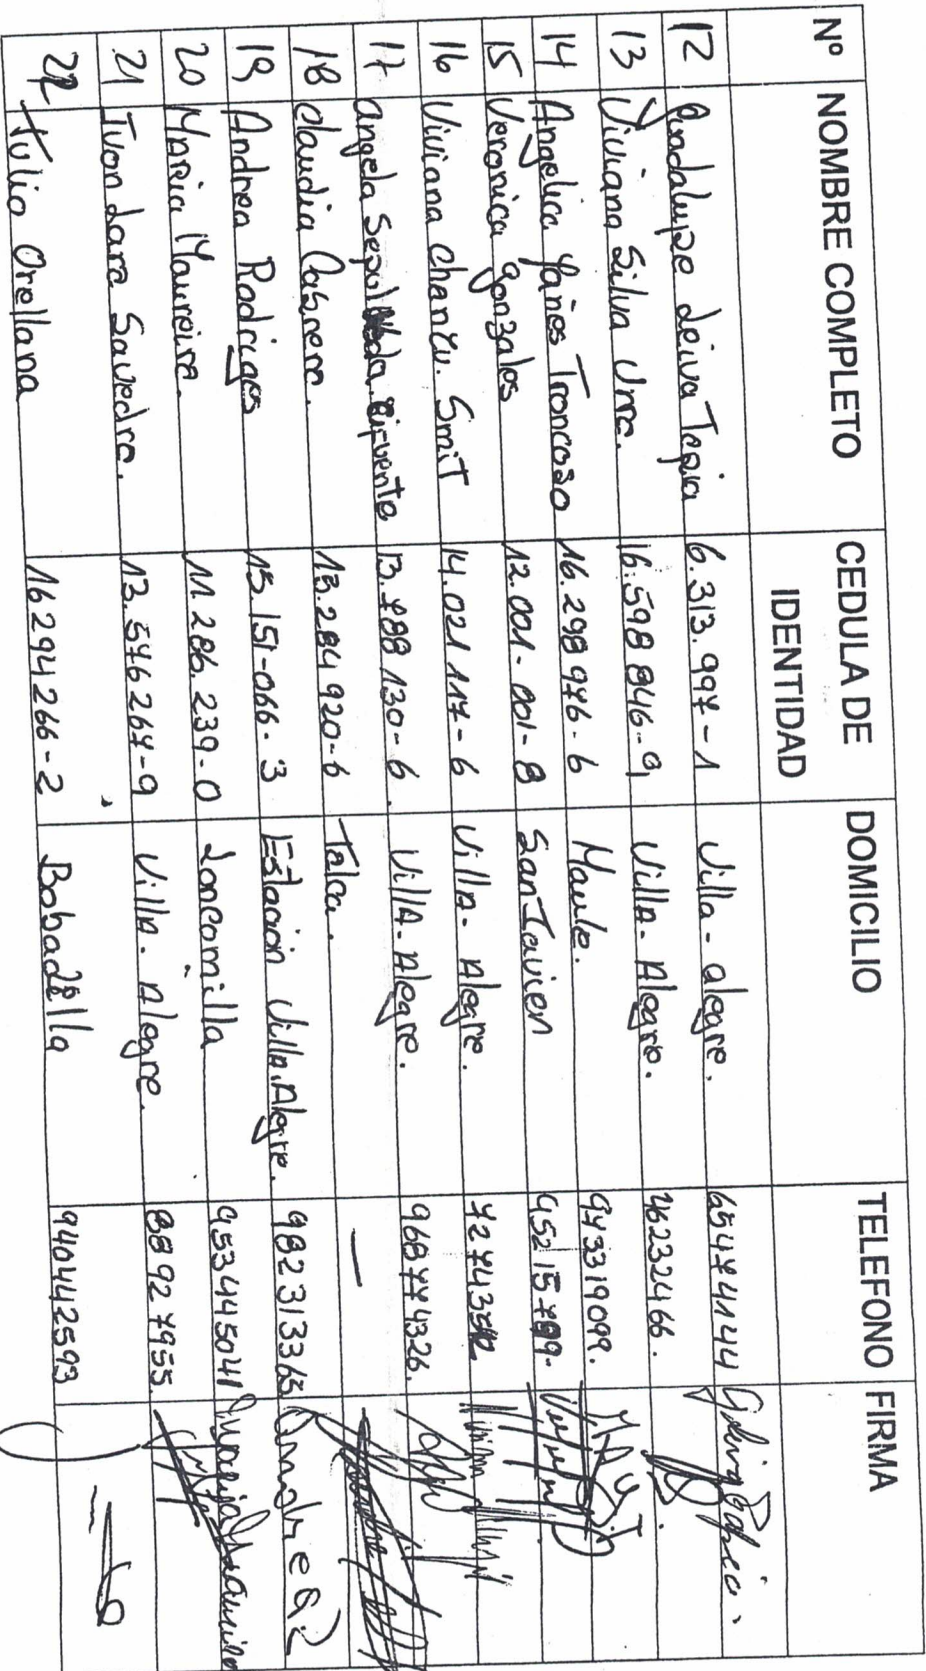 Nº NOMBRE COMPLETO CEDULA DE IDENTIDAD DOMICILIO TELEFONO FIRMA
12 Guadalupe Leiva Tapia 6.313.997-1 Villa-alegre. 65474144
13 Viviana Silva Urra. 16.598 846-9 Villa-Alegre. 76232466.
14 Angelica Yañes Troncoso 16.298 976-6 Maule. 943319099.
15 Veronica gonzales 12.001-001-8 San Javier 95215789-
16 Viviana Smit 14.021 117-6 Villa-Alegre.
17 Angela Sepulveda 13.788 130-6. VillA-Alegre. 968774326.
18 Claudia Cabrera. 13.284 920-6 Talca. —
19 Andrea Rodriges 15.151-066-3 Estacion Villa.Alegre. 982313365 Andrea R
20 Maria Maureira. 11.286.239-0 Loncomilla 953445041
21 Ivon Lara Savedra. 13.576 267-9 Villa-Alegre. 88927955.
22 Tulio Orellana 16294266-2 Bobadilla 940442593